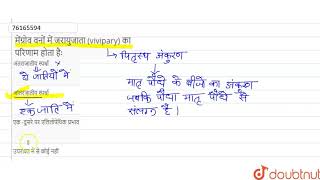 76165594
मैंग्रोव वनों में जरायुजाता (vivipary) का
परिणाम होता है:
अंतराजातीय स्पर्धा
दो जातियों में
अंतःजातीय स्पर्धा
एक जाति में
एक -दूसरे पर एलिलोपैथिक प्रभाव
उपरोक्त में से कोई नहीं
→ पितृस्थ अंकुरण
↳ मातृ पौधे के बीजों का अंकुरण
जबकि पौधा मातृ पौधे से
संलग्न है।
doubtnut